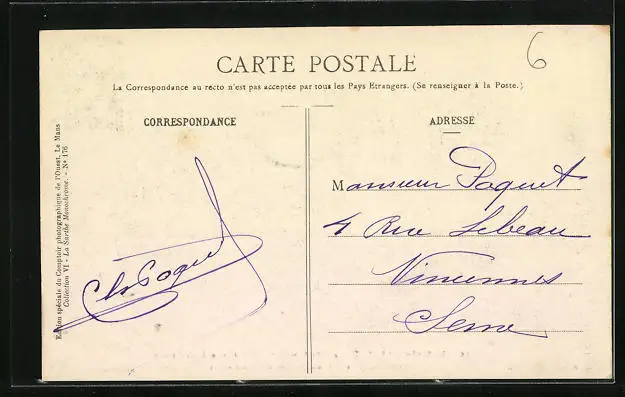 6
CARTE POSTALE
La Correspondance au recto n'est pas acceptée par tous les Pays Etrangers. (Se renseigner à la Poste.)
CORRESPONDANCE
ADRESSE
Monsieur Paquet
4 Rue Lebeau
Vincennes
Seine
Ch Paquet
Edition spéciale du Comptoir photographique de l'Ouest, Le Mans
Collection VI - La Sarthe Monochrome. - N° 176